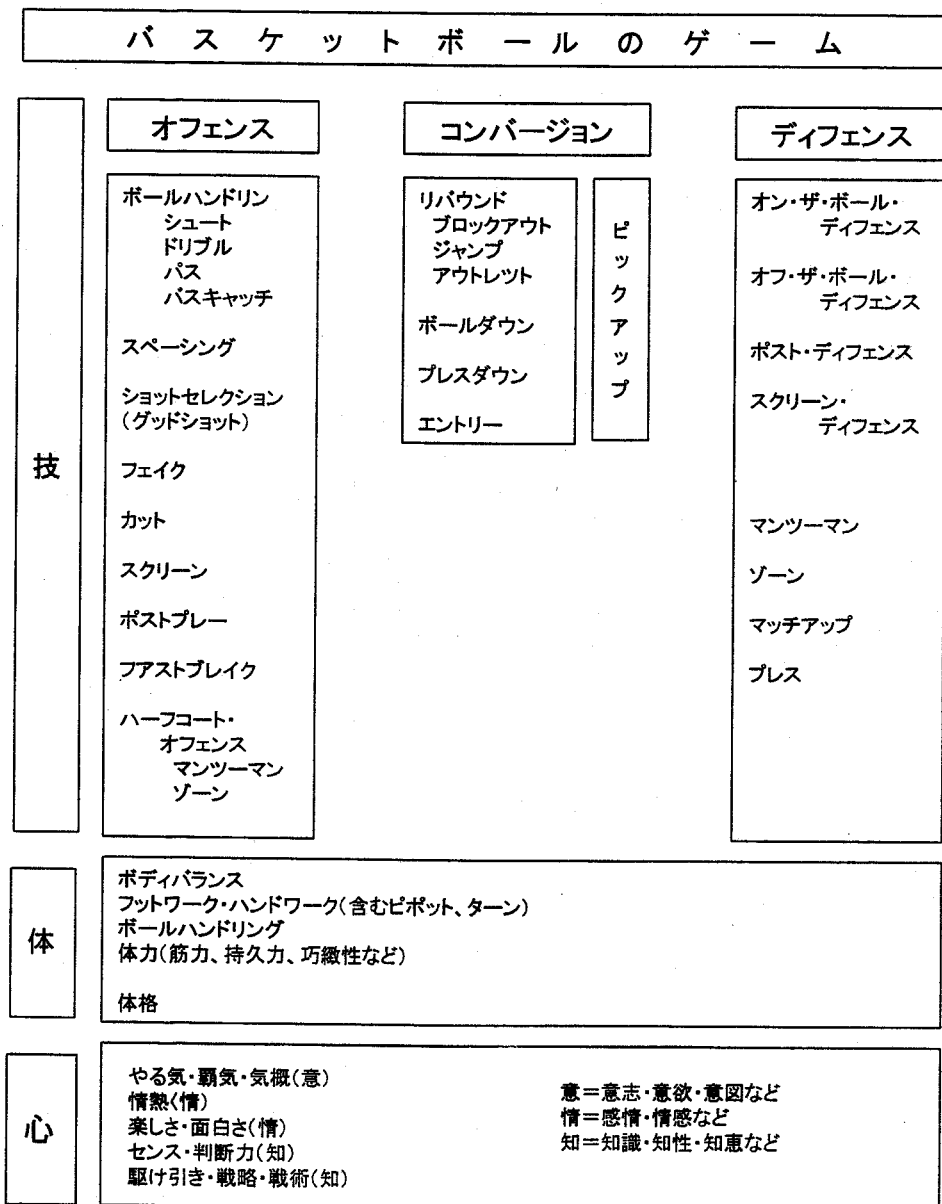 バスケットボールのゲーム
技
オフェンス
ボールハンドリン
シュート
ドリブル
パス
パスキャッチ
スペーシング
ショットセレクション
(グッドショット)
フェイク
カット
スクリーン
ポストプレー
フアストブレイク
ハーフコート・
オフェンス
マンツーマン
ゾーン
コンバージョン
リバウンド
ブロックアウト
ジャンプ
アウトレツト
ボールダウン
プレスダウン
エントリー
ピックアップ
ディフェンス
オン・ザ・ボール・
ディフェンス
オフ・ザ・ボール・
ディフェンス
ポスト・ディフェンス
スクリーン・
ディフェンス
マンツーマン
ゾーン
マッチアップ
プレス
体
ボディバランス
フットワーク・ハンドワーク(含むピポット、ターン)
ボールハンドリング
体力(筋力、持久力、巧緻性など)
体格
心
やる気・覇気・気概(意)
情熱(情)
楽しさ・面白さ(情)
センス・判断力(知)
駆け引き・戦略・戦術(知)
意=意志・意欲・意図など
情=感情・情感など
知=知識・知性・知恵など